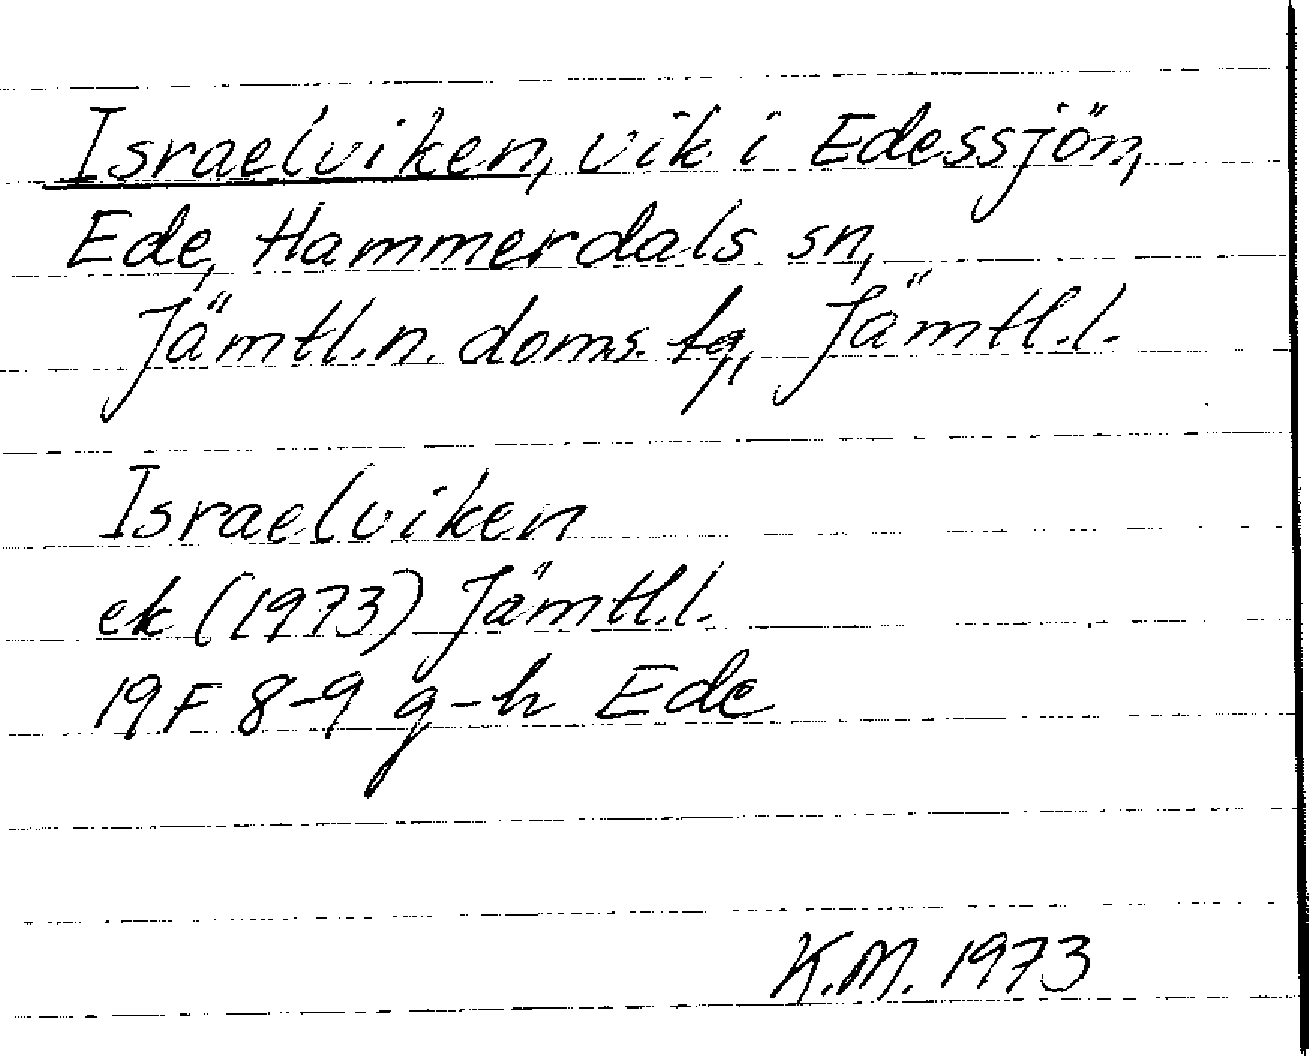 Israelviken, vik i Edessjön,
Ede, Hammerdals sn,
Jämtl.n. doms.fg, Jämtl.l.
Israelviken
ek (1973) Jämtl.l.
19F 8-9 g-h Ede
K.M. 1973